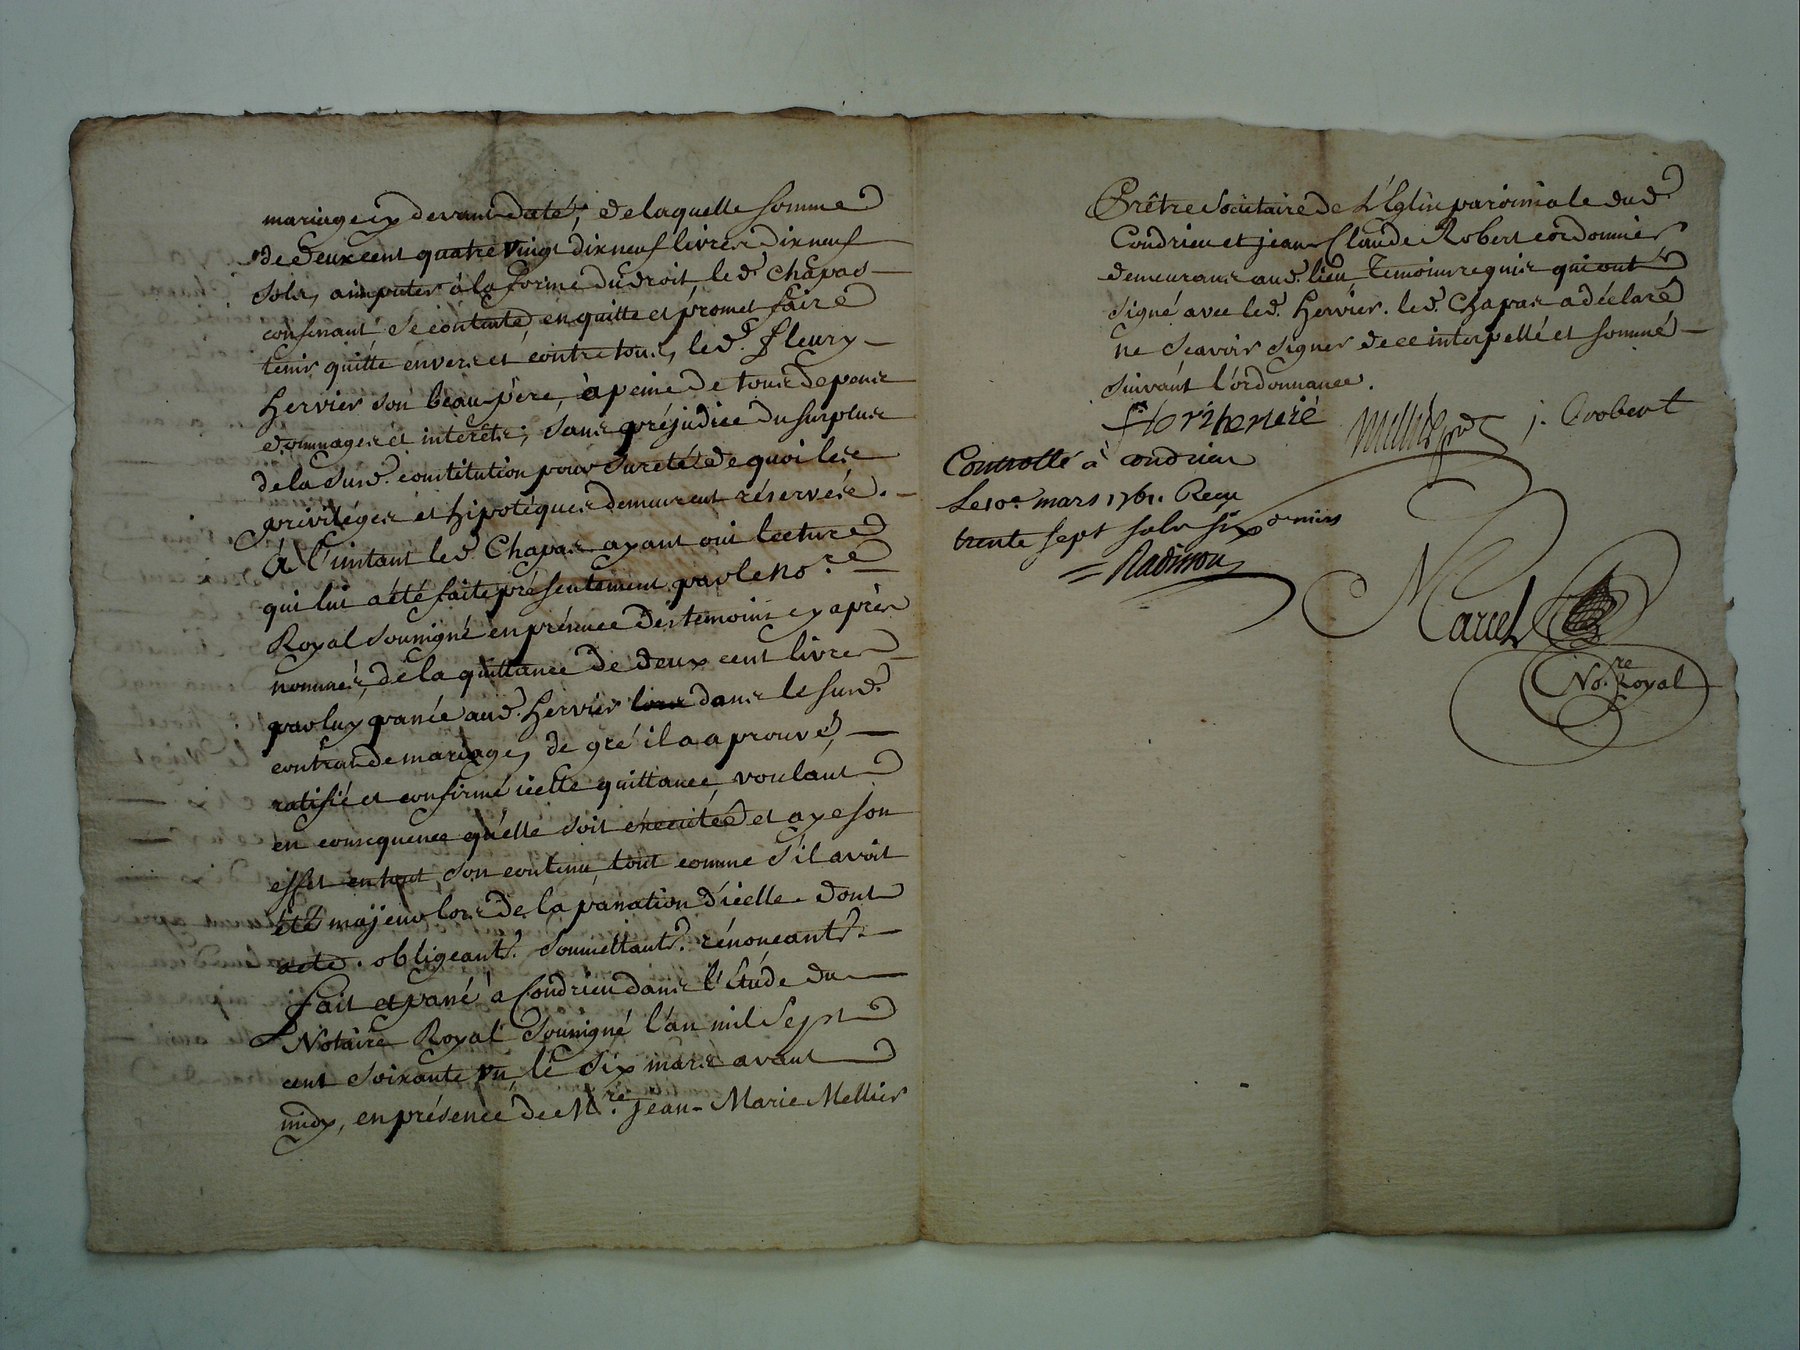 mariage cy devant daté; de laquelle somme
de deux cent quatre vingt dixneuf livres dixneuf
sols, a imputer à la forme du droit, led. Chapas
consinant se contente, en quitte et promet faire
tenir quitte envers et contre tous, led. Fleury
Hervier son beau père, à peine de tous depens
dommages et interêts; sans préjudice du surplus
de la susd. constitution pour sureté de quoi les
privilèges et hipotéques demeurent réservés.
à l'instant led. Chapas ayant oui lecture
qui lui a été faite présentement par le no.re
Royal soussigné en présence des temoins cy après
nommés, de la quittance de deux cent livres
par luy passée aud. Hervier dans le susd.
contrat de mariage, de gré il a aprouvé,
ratifié et confirmé icelle quittance, voulant
en consequence qu'elle soit éxecutée et aye son
effet en tout son contenu, tout comme s'il avoit
été majeur lors de la passation d'icelle. dont
acte. obligeant. soumettant. rénonceant.
fait et passé à Condrieu dans l'étude du
Notaire Royal soussigné l'an mil sept
cent soixante un, le six mars avant
midy, en présence de M.re Jean-Marie Mellier
Prêtre Societaire de L'Eglise paroissiale dud.
Condrieu et jean Claude Robert cordonnier
demeurans aud. lieu, Temoins requis qui ont
signé avec led. Hervier. led. Chapas a déclaré
ne scavoir signer de ce interpellé et sommé
suivant l'ordonnance.
Mellier j. Robert
Controllé à Condrieu
Le 10e mars 1761. Reçu
trente sept sols six deniers
Marcel
No.re Royal